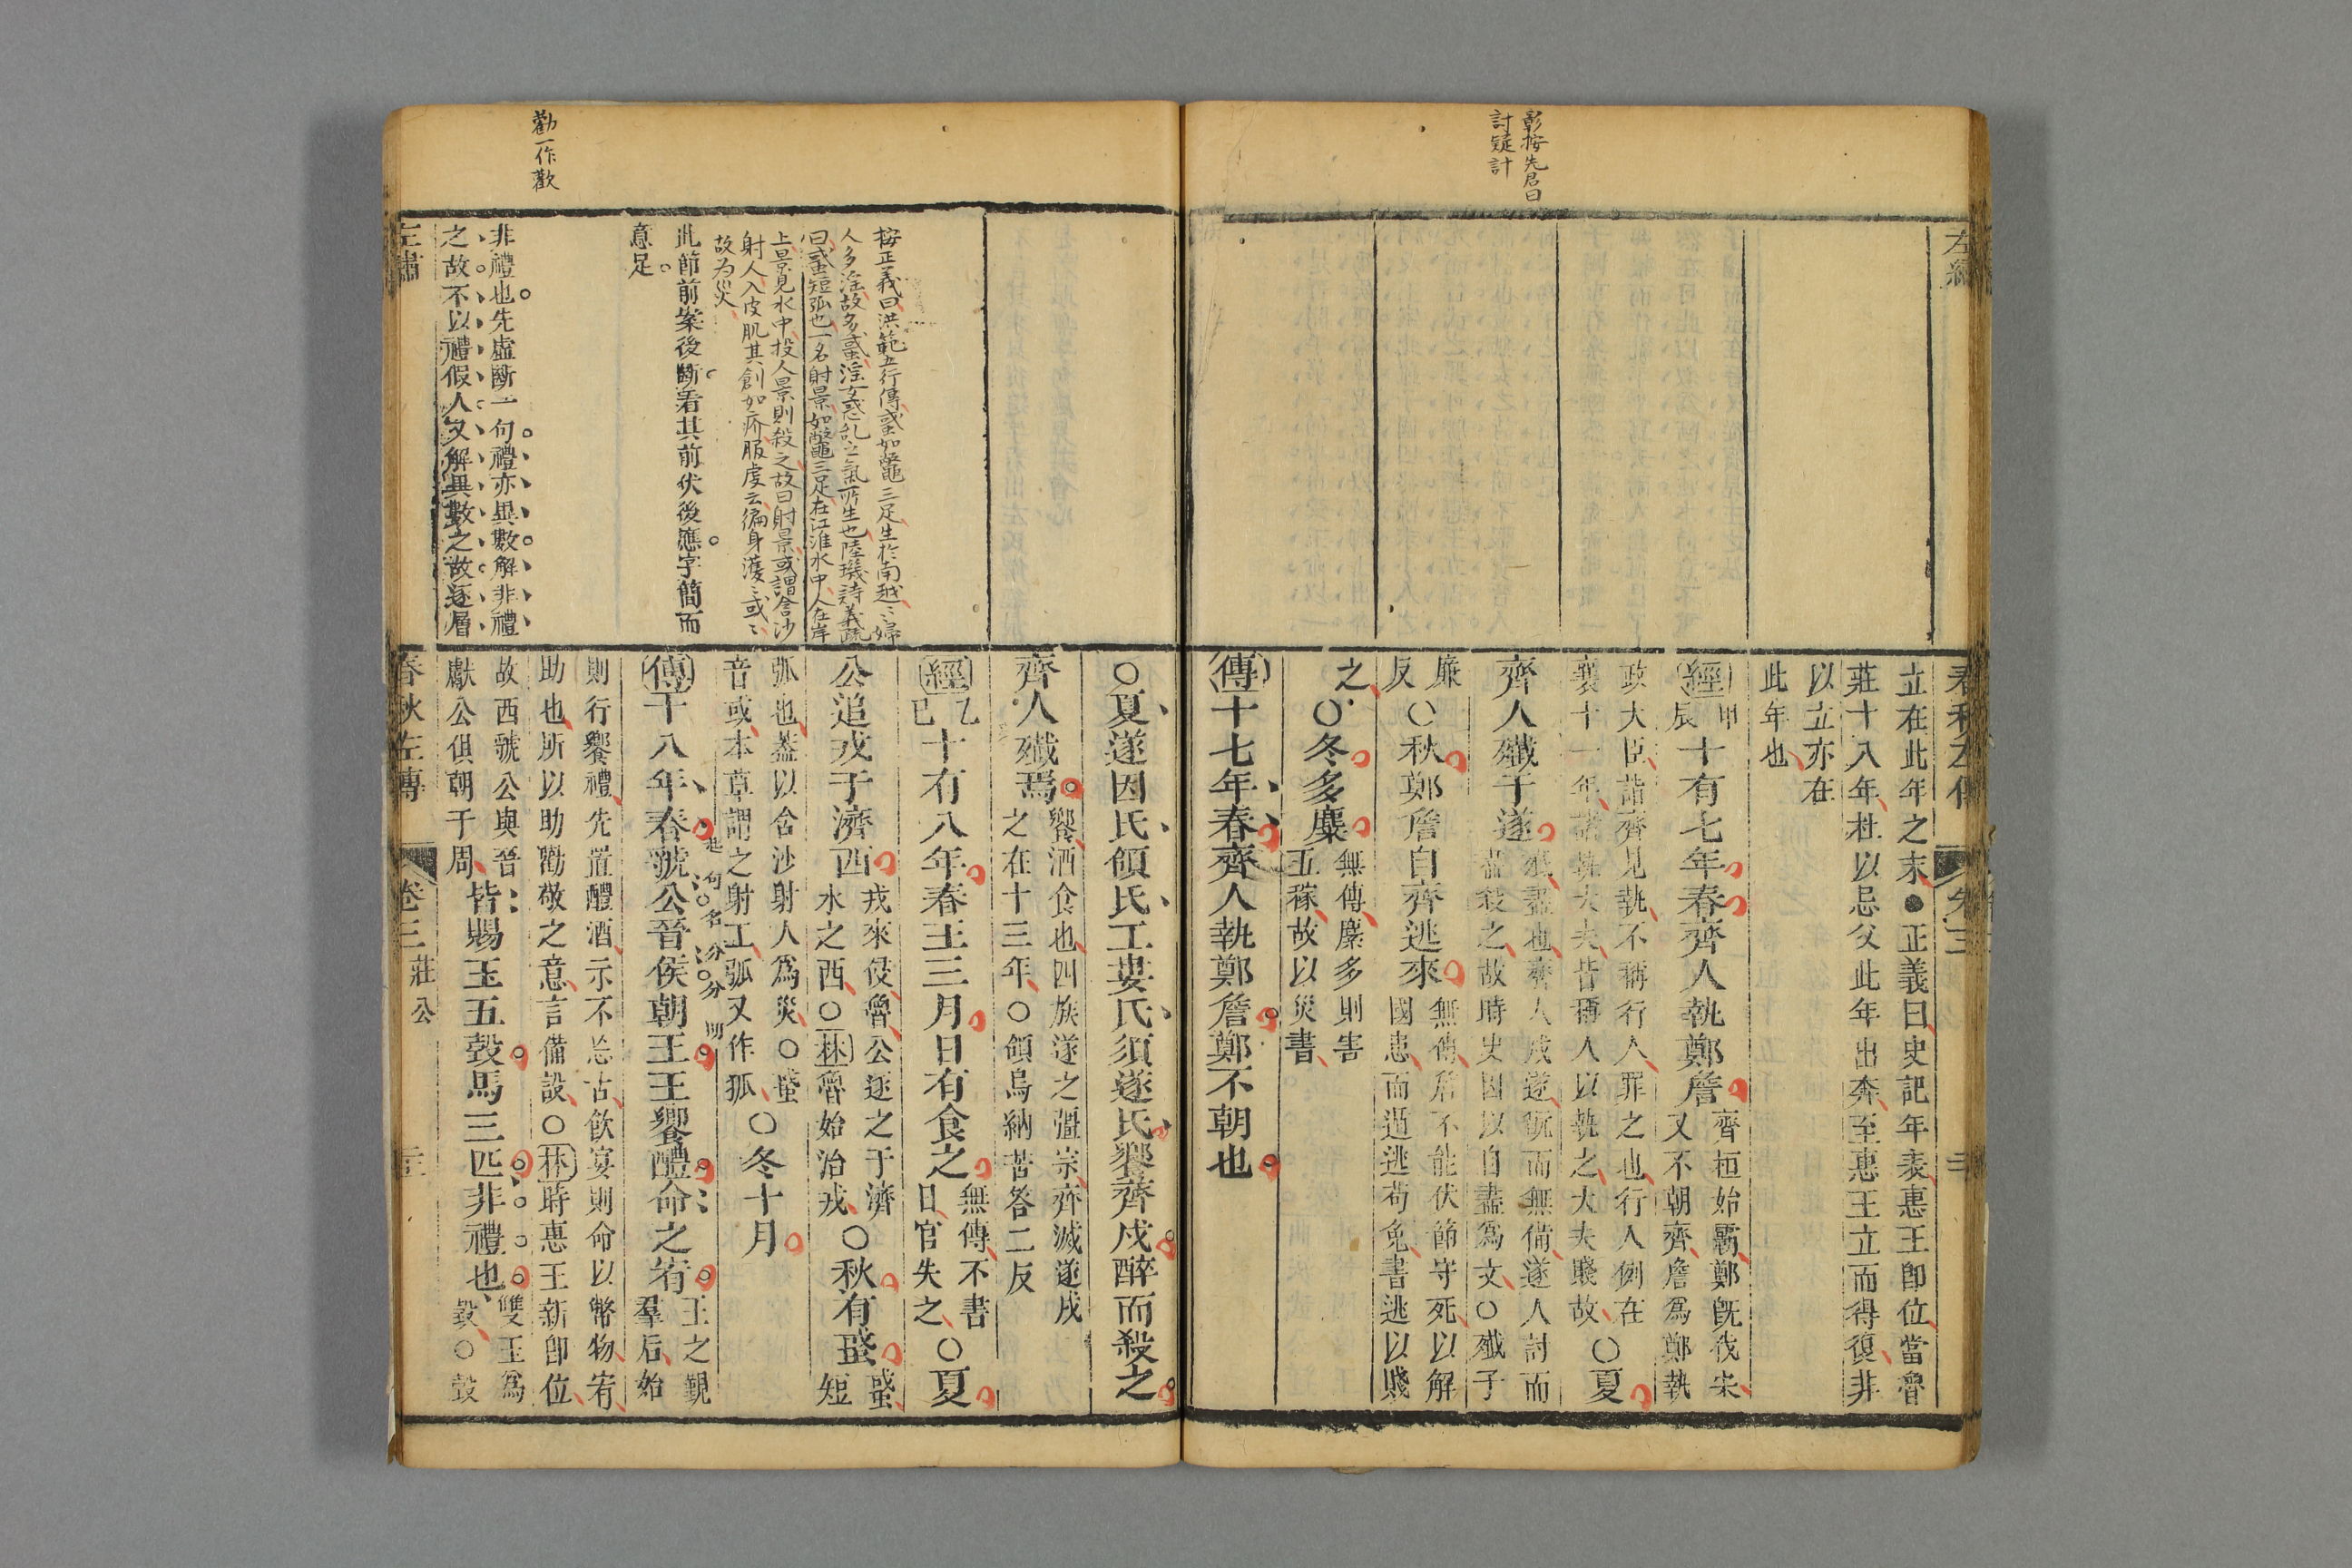 彰按先君曰
討疑計
左繡
春秋左傳
卷三
立在此年之末●正義曰史記年表惠王卽位當魯
莊十八年杜以忌父此年出奔至惠王立而得復非
以立亦在
此年也
經甲辰十有七年春齊人執鄭詹齊桓始霸鄭旣伐宋
又不朝齊詹爲鄭執
政大臣詣齊見執不稱行人罪之也行人例在
襄十一年諸執大夫皆稱人以執之大夫賤故○夏
齊人殲于遂殲盡也齊人戍遂翫而無備遂人討而
盡殺之故時史因以自盡爲文○殲子
廉
反○秋鄭詹自齊逃來無傳詹不能伏節守死以解
國患而遁逃苟免書逃以賤
之○冬多麋無傳麋多則害
五稼故以災書
傳十七年春齊人執鄭詹鄭不朝也
○夏遂因氏頜氏工婁氏須遂氏饗齊戍醉而殺之
齊人殲焉饗酒食也四族遂之彊宗齊滅遂戍
之在十三年○頜烏納苦答二反
經乙巳十有八年春王三月日有食之無傳不書
日官失之○夏
公追戎于濟西戎來侵魯公逐之于濟
水之西○林魯始治戎○秋有蜮蜮
短
弧也蓋以含沙射人爲災○蜮
音或本草謂之射工弧又作狐○冬十月
傳十八年春虢公晉侯朝王王饗醴命之宥王之覲
羣后始
起句○名分○分明
則行饗禮先置醴酒示不忘古飲宴則命以幣物宥
助也所以助勸敬之意言備設○林時惠王新卽位
故西虢公與晉
獻公俱朝于周皆賜玉五瑴馬三匹非禮也雙玉爲
瑴○瑴
按正義曰洪範五行傳蜮如鼈三足生於南越〻婦
人多淫故多蜮淫女惑乱之氣所生也陸璣詩義疏
曰蜮短弧也一名射景如鼈三足在江淮水中人在岸
上景見水中投人景則殺之故曰射景或謂含沙
射人入皮肌其創如疥服虔云徧身濩〻或〻
故为災
此節前案後斷着其前伏後應字簡而
意足
勸一作歡
非禮也先虛斷一句禮亦異數解非禮
之故不以禮假人又解異數之故逐層
左繡
春秋左傳
卷三
莊公